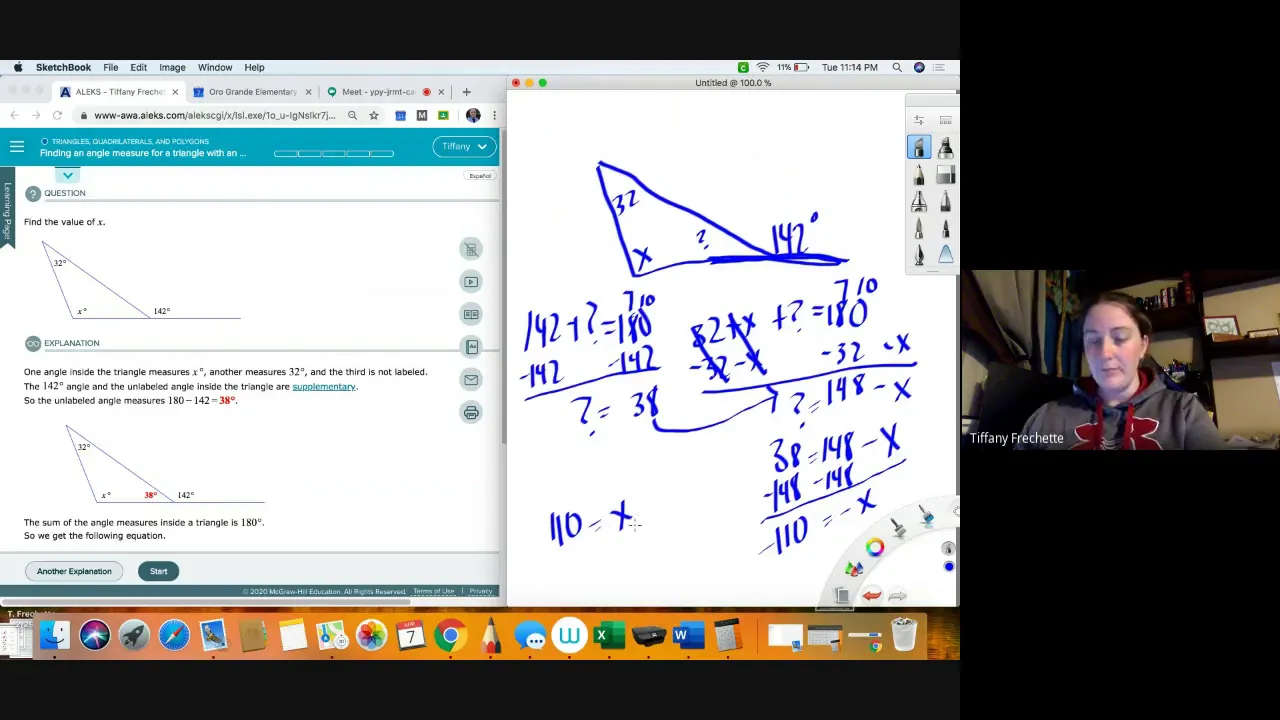 SketchBook File Edit Image Window Help
11% Tue 11:14 PM
ALEKS - Tiffany Freche
Oro Grande Elementary
Meet - ypy-jrmt-ca
Untitled @ 100.0 %
www-awa.aleks.com/alekscgi/x/Isl.exe/1o_u-IgNsIkr7j...
TRIANGLES, QUADRILATERALS, AND POLYGONS
Finding an angle measure for a triangle with an ...
Tiffany
Español
Learning Page
QUESTION
Find the value of x.
32°
x° 142°
EXPLANATION
One angle inside the triangle measures x°, another measures 32°, and the third is not labeled.
The 142° angle and the unlabeled angle inside the triangle are supplementary.
So the unlabeled angle measures 180−142=38°.
32°
x° 38° 142°
The sum of the angle measures inside a triangle is 180°.
So we get the following equation.
Another Explanation Start
© 2020 McGraw-Hill Education. All Rights Reserved. Terms of Use Privacy
T. Freche
32
x ? 142°
7 10
142+?=180
-142 -142
?= 38
7 10
32+x +?=180
-32-x -32 -x
?=148-x
38=148-x
-148 -148
-110=-x
110=x
APR
7
Tiffany Frechette